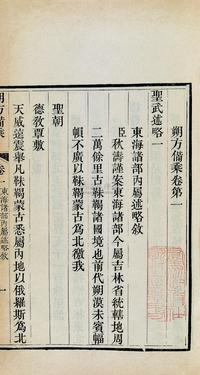 朔方備乘卷第一
聖武述略一
東海諸部內屬述略敘
臣秋濤謹案東海諸部今屬吉林省統轄地周
二萬餘里古靺鞨諸國境也前代朔漠未賓幅
𪫺不廣以靺鞨蒙古為北徼我
聖朝
德教覃敷
天威遠震舉凡靺鞨蒙古悉屬內地以俄羅斯為北
朔方備乘
卷一
東海諸部內屬述略敘
一